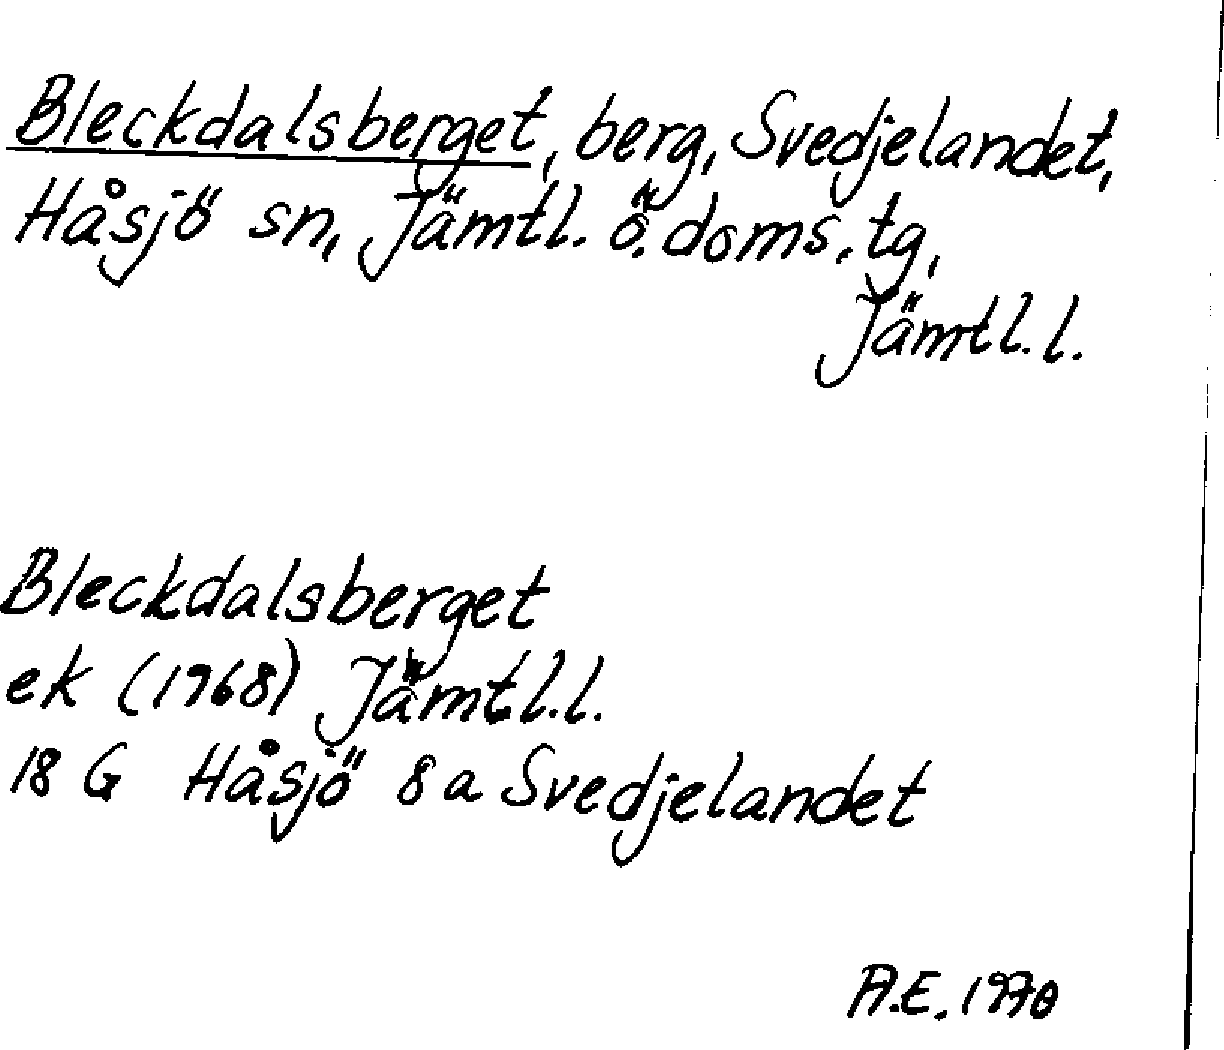 Bleckdalsberget, berg, Svedjelandet,
Håsjö sn, Jämtl. ö. doms. tg,
Jämtl. l.
Bleckdalsberget
ek (1968) Jämtl. l.
18 G Håsjö 8 a Svedjelandet
A.E. 1970